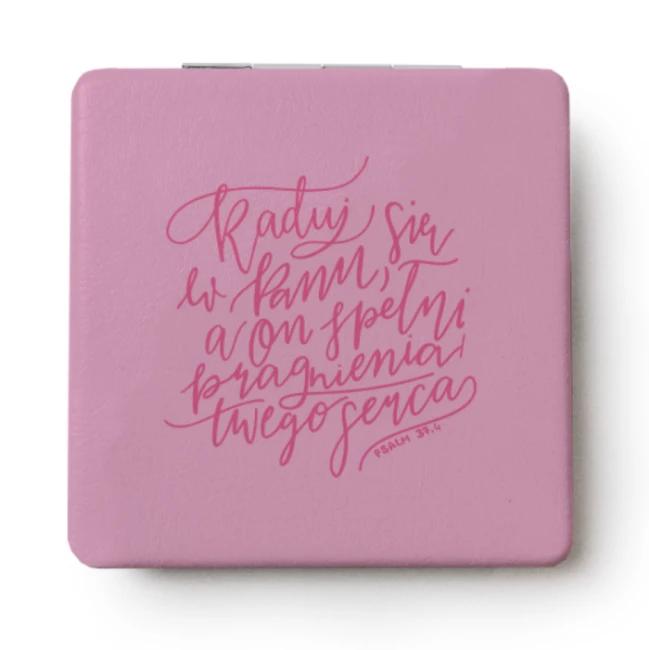 Raduj się
w Panu,
a on spełni
pragnienia
twego serca
PSALM 37,4